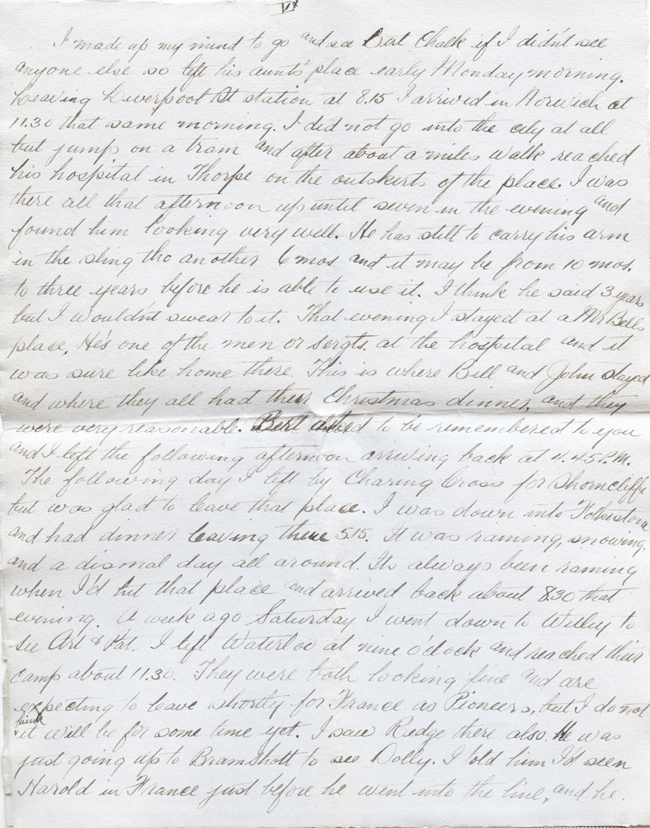 VI
I made up my mind to go and see Bert Chalk if I didn't see
anyone else so left his aunt's place early Monday morning.
Leaving Liverpool St station at 8.15 I arrived in Norwich at
11.30 that same morning. I did not go into the city at all
but jump on a tram and after about a miles walk reached
his hospital in Thorpe on the outskirts of the place. I was
there all that afternoon up until seven in the evening and
found him looking very well. He has still to carry his arm
in the sling tho another 6 mos and it may be from 10 mos.
to three years before he is able to use it. I think he said 3 years
but I wouldn't swear to it. That evening I stayed at a Mr Bells
place. He's one of the men or sergts. at the hospital and it
was sure like home there. This is where Bill and John stayed
and where they all had their Christmas dinner, and they
were very reasonable. Bert asked to be remembered to you
and I left the following afternoon arriving back at 4.45 P.M.
The following day I left by Charing Cross for Shorncliffe
but was glad to leave that place. I was down into Folkestone
and had dinner leaving there 5.15. It was raining, snowing,
and a dismal day all around. Its always been raining
when I'd hit that place and arrived back about 8.30 that
evening. A week ago Saturday I went down to Willey to
see Art & Pat. I left Waterloo at nine o'clock and reached their
camp about 11.30. They were both looking fine and are
expecting to leave shortly for France as Pioneers, but I do not
think it will be for some time yet. I saw Redge there also He was
just going up to Bramshott to see Dolly. I told him I'd seen
Harold in France just before he went into the line, and he.